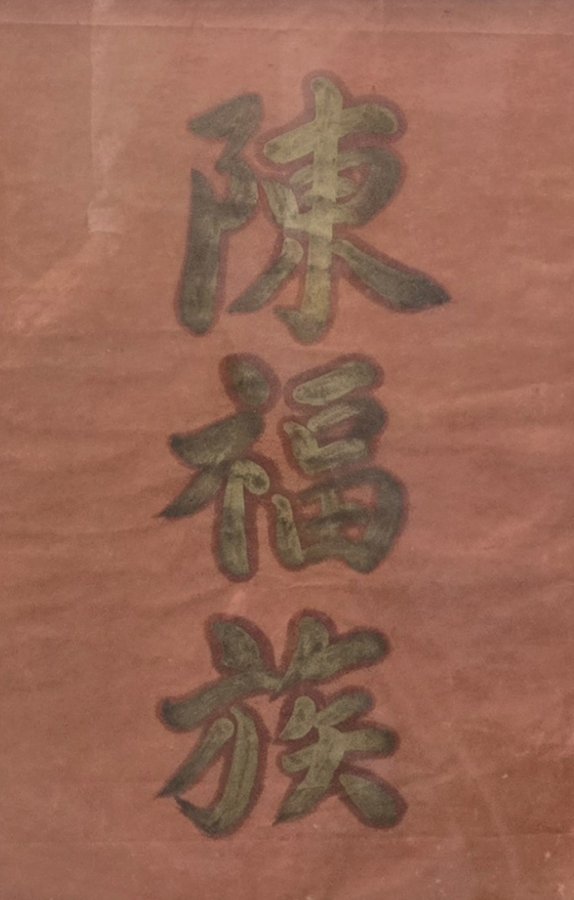 陳福族